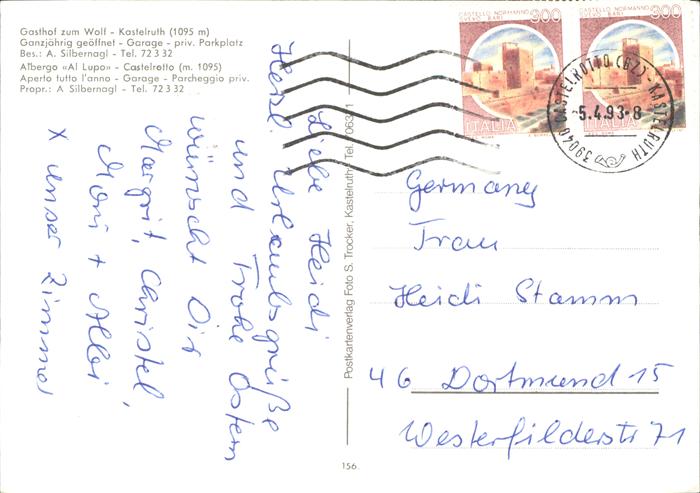 Gasthof zum Wolf - Kastelruth (1095 m)
Ganzjährig geöffnet - Garage - priv. Parkplatz
Bes.: A. Silbernagl - Tel. 72 3 32
Albergo «Al Lupo» - Castelrotto (m. 1095)
Aperto tutto l'anno - Garage - Parcheggio priv.
Propr.: A Silbernagl - Tel. 72 3 32
Liebe Heidi
Herzl. Urlaubsgrüße
und Frohe Ostern
wünscht Dir
Margrit, Christel,
Moni + Albi
X unser Zimmer
Postkartenverlag Foto S. Trocker, Kastelruth, Tel.
156
CASTELLO NORMANNO
SVEVO BARI
300
ITALIA
CASTELLO NORMANNO
SVEVO BARI
300
ITALIA
39040 CASTELROTTO (BZ) - KASTELRUTH
-5.4.93-8
Germany
Frau
Heidi Stamm
46 Dortmund 15
Westerfilderstr 71